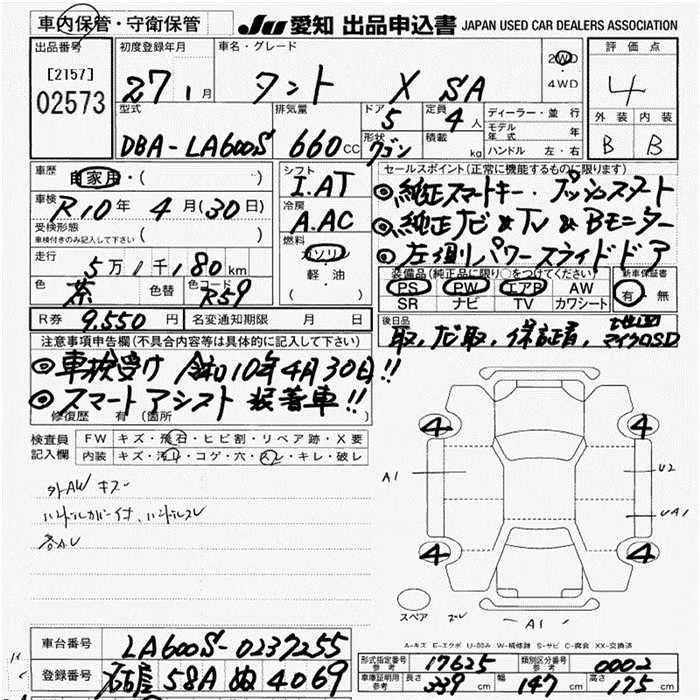 車内保管・守衛保管
JU 愛知 出品申込書 JAPAN USED CAR DEALERS ASSOCIATION
出品番号
[2157]
02573
初度登録年月
27 1月
車名・グレード
タント X SA
2WD
・
4WD
評価点
4
外装 内装
B B
型式
DBA-LA600S
排気量
660cc
ドア
5
形状
ワゴン
定員
4人
積載
kg
ディーラー・並行
モデル年式 年
ハンドル 左・右
車歴
自家用・( )
車検
R10年4月(30日)
受検形態
車検付きのみ記入して下さい ( )
走行
5万1千180km
色
茶
色替
色コード
R59
シフト
I.AT
冷房
A.AC
燃料
ガソリン
軽・油
セールスポイント(正常に機能するものに限ります)
◎純正スマートキー・プッシュスタート
◎純正ナビ&TV&Bモニター
◎左側パワースライドドア
装備品(純正品に限り○をつけてください)
PS PW エアB AW
SR ナビ TV カワシート
新車保証書
有・無
R券 9.550円
名変通知期限 月 日
後日品
取,ナビ取,保証書,地図マイクロSD
注意事項申告欄(不具合内容等は具体的に記入して下さい)
◎車検受け 令和10年4月30日!!
◎スマートアシスト 装着車!!
修復歴 有(箇所
検査員
記入欄
FW キズ・飛石・ヒビ割・リペア跡・X要
内装 キズ・汚レ・コゲ・穴・スレ・キレ・破レ
外AW キズ
ハンドルカバー付、ハンドルスレ
4 4
A1 U2
UA1
4 4
スペア
A1
A-キズ E-エクボ U-凹み W-補修跡 S-サビ C-腐食 XX-交換済
車台番号 LA600S-0237255
登録番号 58A ぬ 4069
型式指定番号
参考
17625
類別区分番号
参考
0002
車庫証明用
参考
長さ 339cm 幅 147cm 高さ 175cm